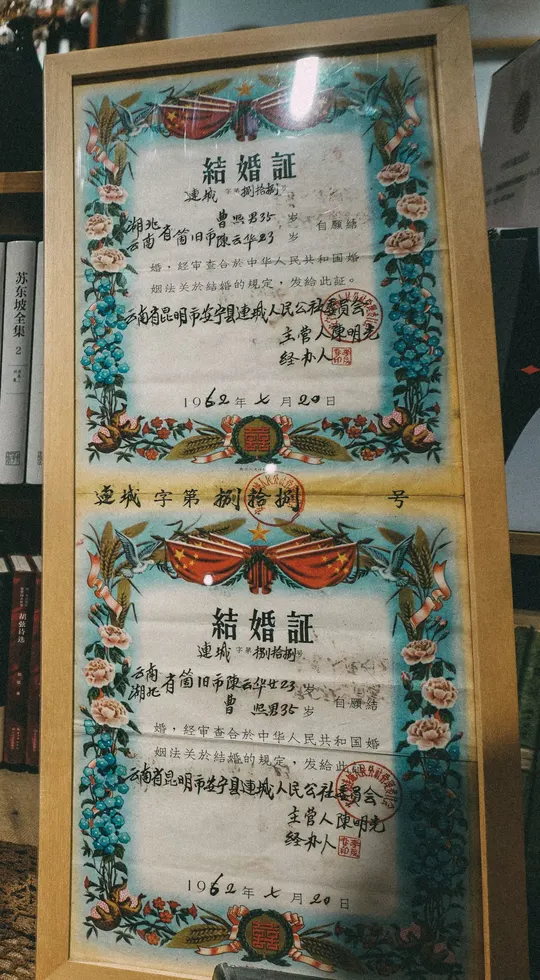 結婚証
連城 字第 捌拾捌 号
湖北 曹照男35 岁
云南省箇旧市陳云华23 岁 自願結
婚，经审查合於中华人民共和国婚
姻法关於結婚的規定，发給此証。
云南省昆明市安宁县連城人民公社委員会
主营人陳明光
经办人
1962年七月20日
連城字第捌拾捌号
結婚証
連城 字第 捌拾捌 号
云南省箇旧市陳云华廿23 岁
湖北 曹照男35 岁 自願結
婚，经审查合於中华人民共和国婚
姻法关於結婚的規定，发給此証。
云南省昆明市安宁县連城人民公社委員会
主营人陳明光
经办人
1962年七月20日
苏东坡全集 2
胡弦诗选